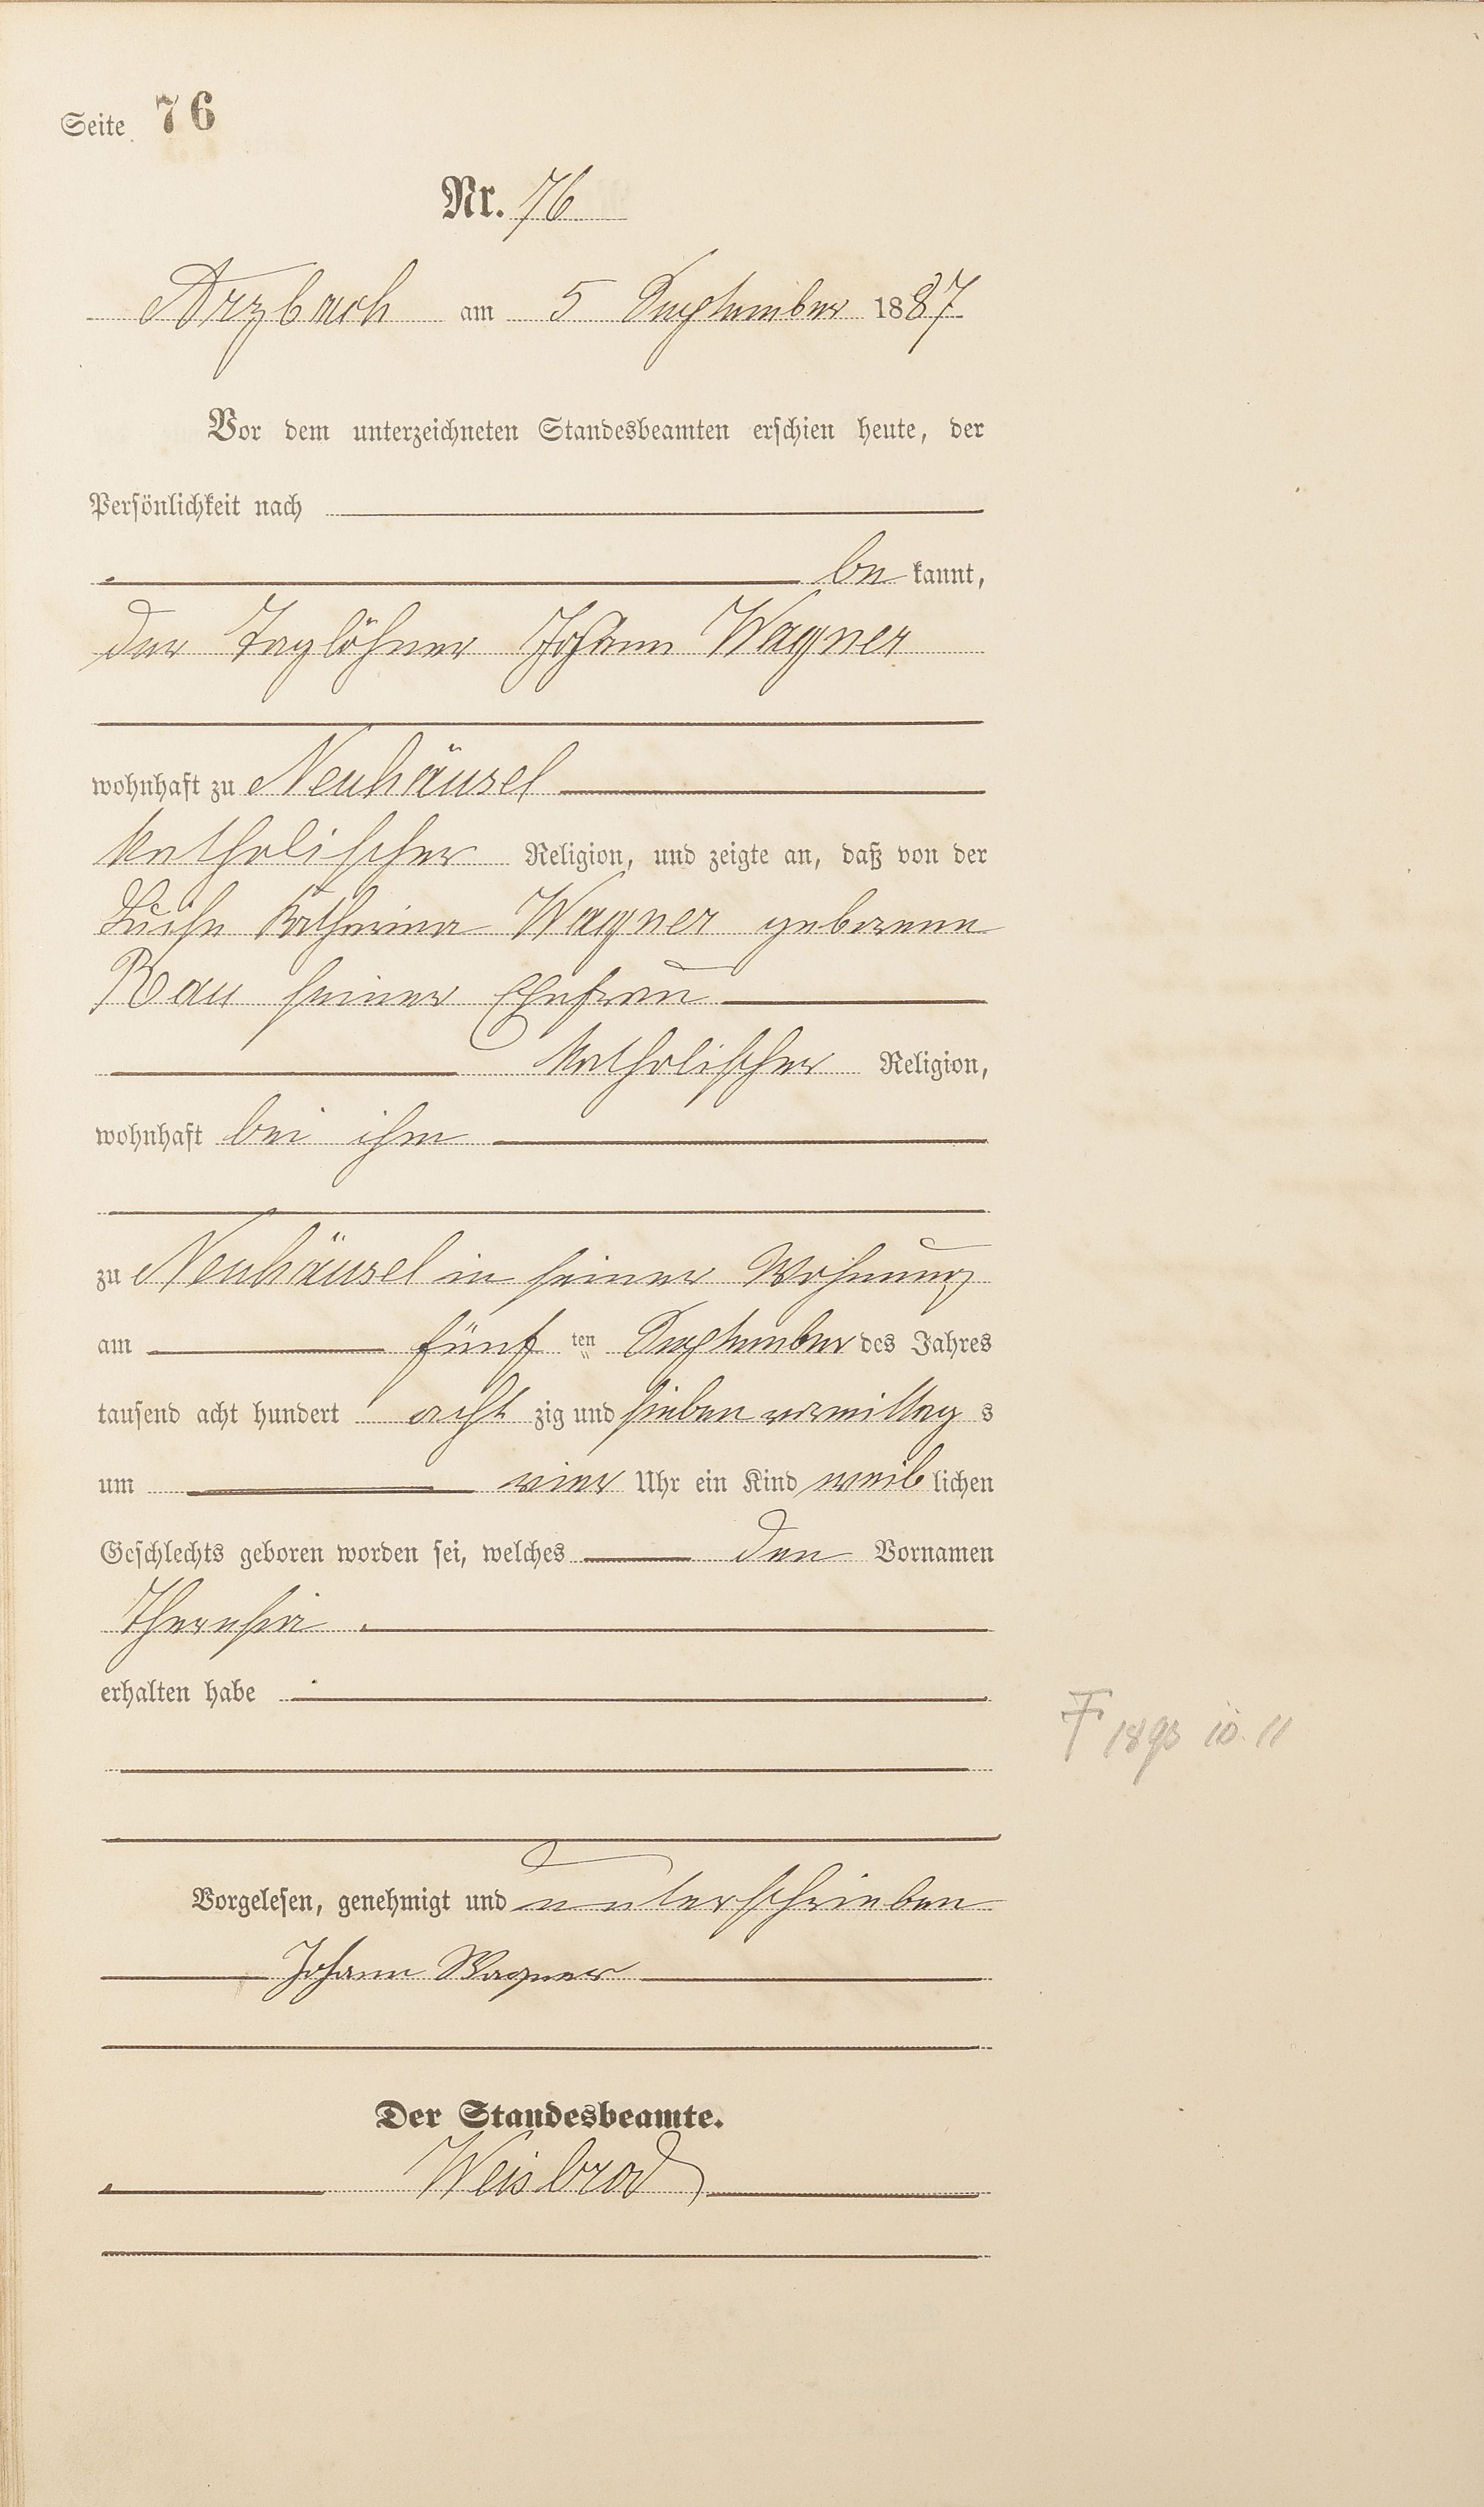 Seite 76
Nr. 76
Arzbach am 5 September 1887
Vor dem unterzeichneten Standesbeamten erschien heute, der
Persönlichkeit nach
be kannt,
der Taglöhner Johann Wagner
wohnhaft zu Neuhäusel
katholischer Religion, und zeigte an, daß von der
Luise Katharina Wagner geborene
Rau seiner Ehefrau
katholischer Religion,
wohnhaft bei ihm
zu Neuhäusel in seiner Wohnung
am fünf ten September des Jahres
tausend acht hundert acht zig und sieben vormittag s
um vier Uhr ein Kind weib lichen
Geschlechts geboren worden sei, welches den Vornamen
Theresia
erhalten habe
Vorgelesen, genehmigt und unterschrieben
Johann Wagner
Der Standesbeamte.
Weisbrod